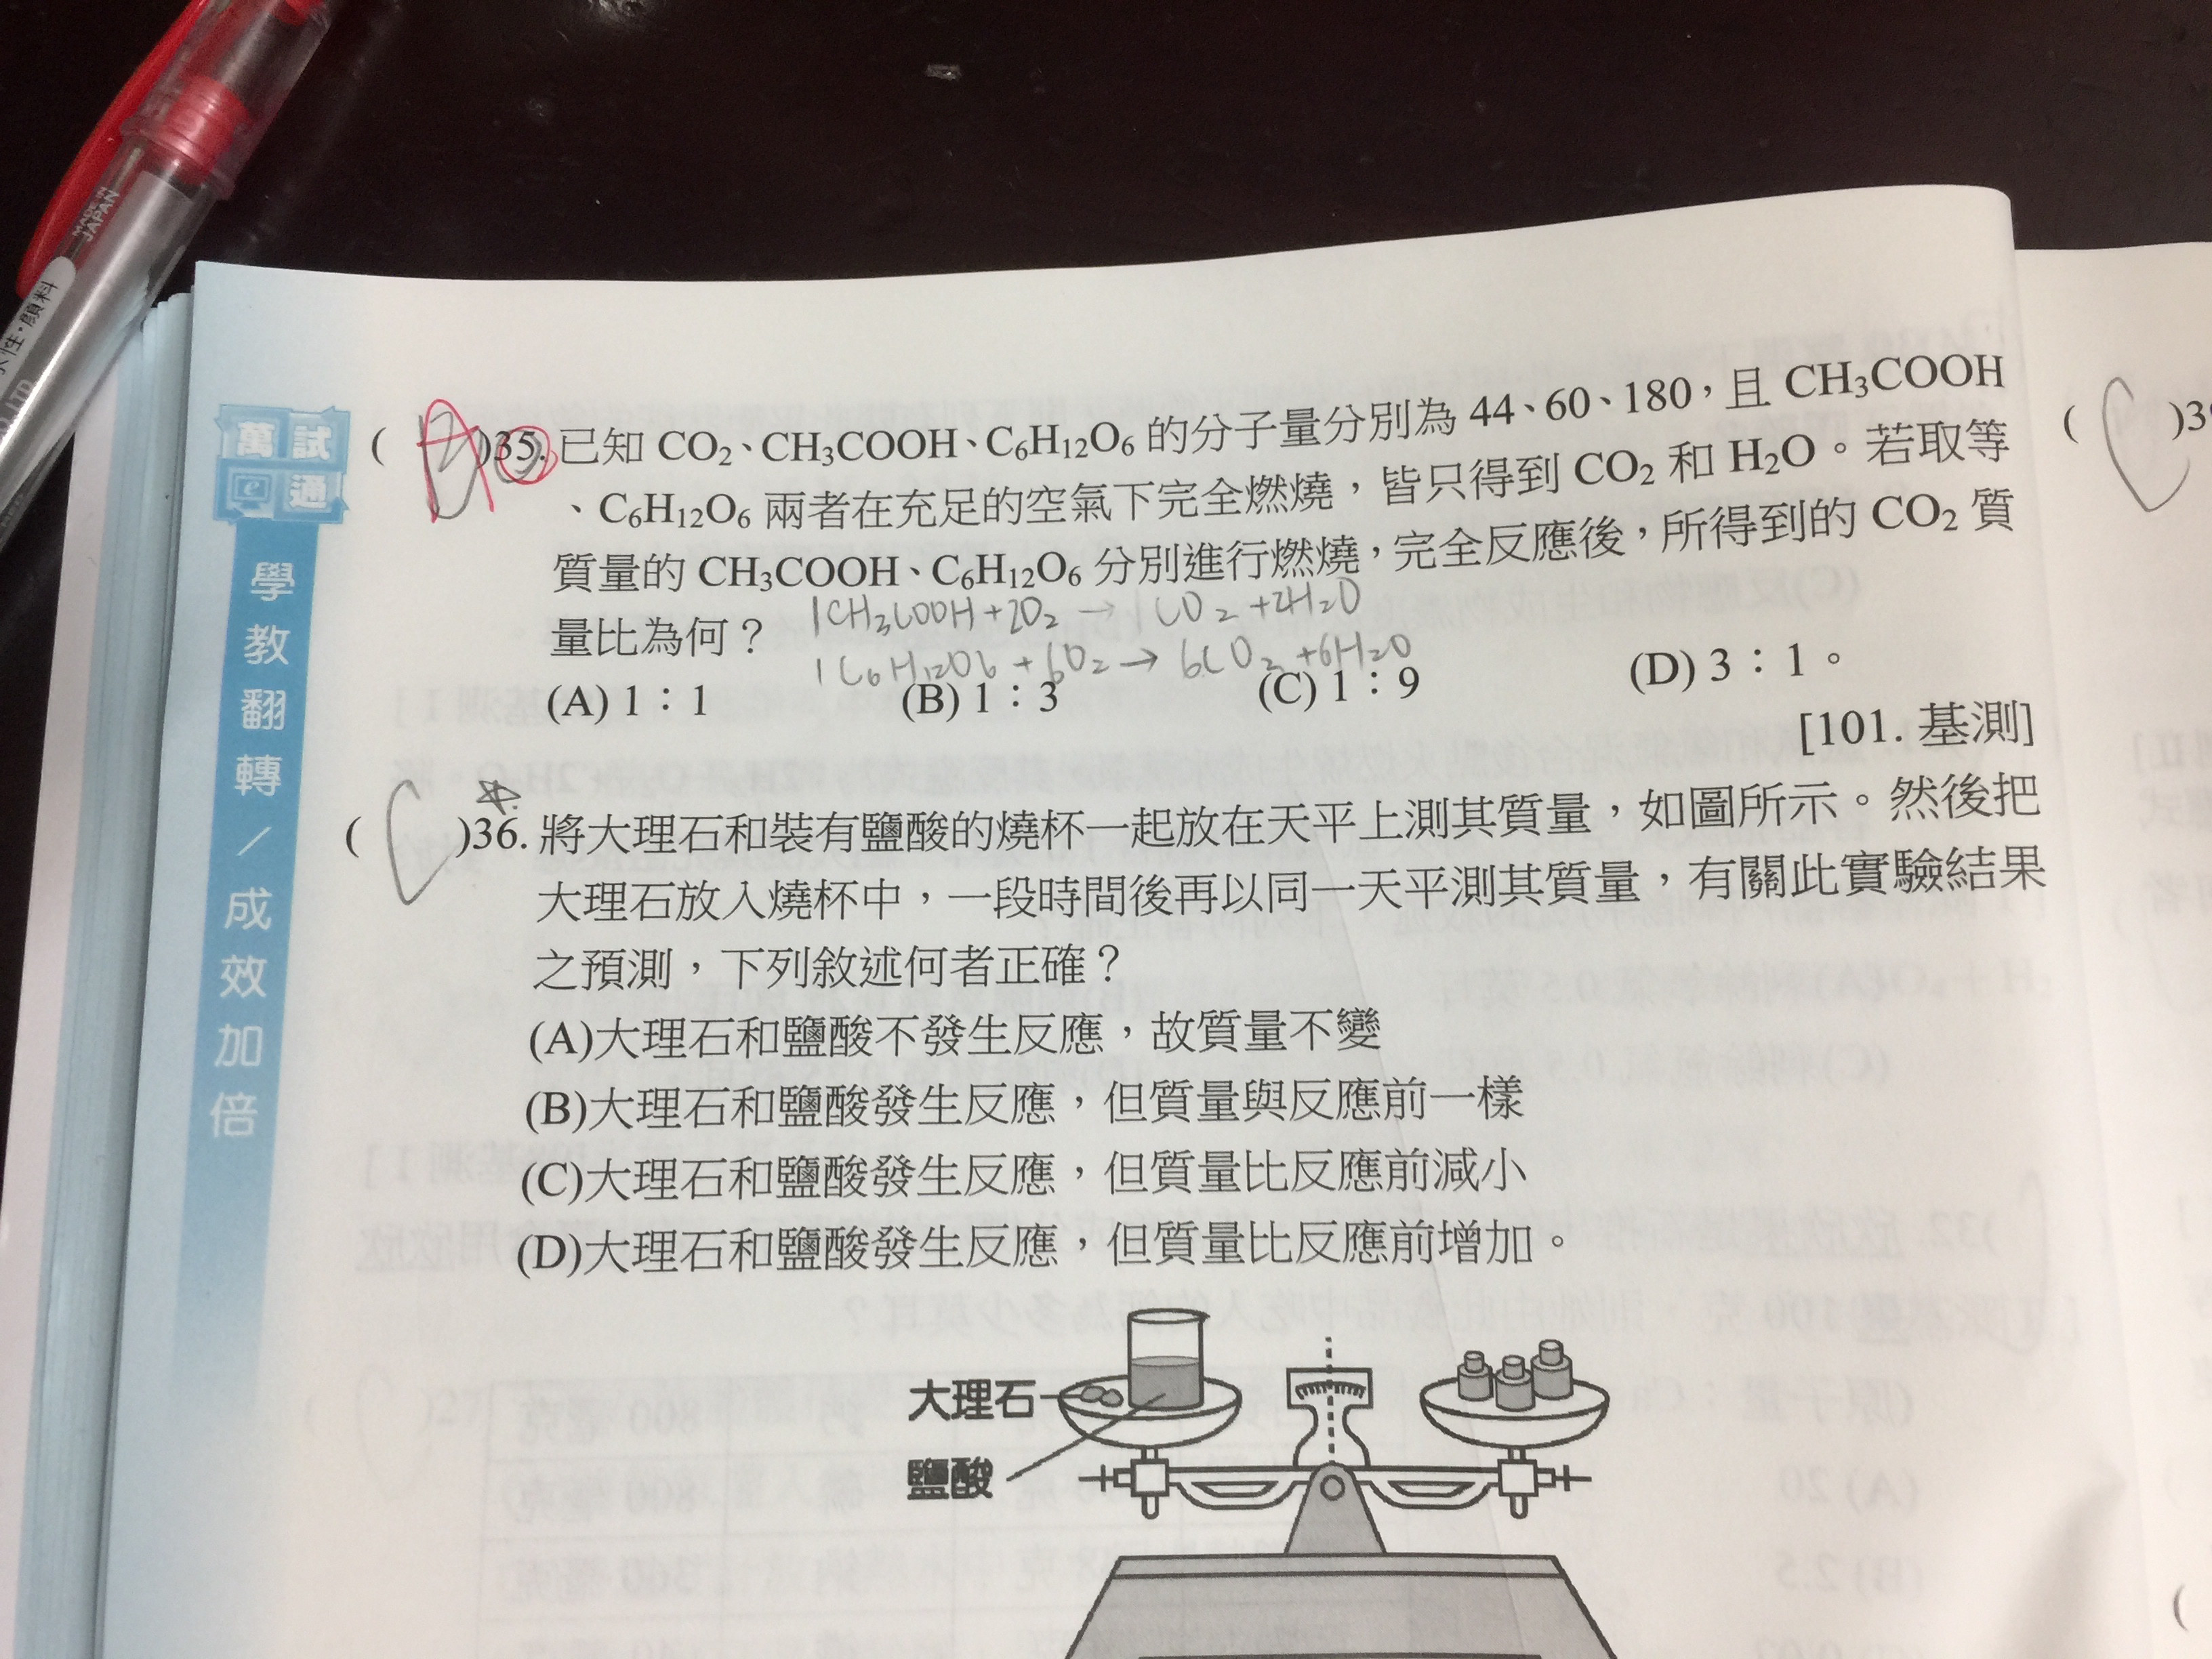 MADE IN
JAPAN
水性・顏料
萬試
e通
學教翻轉／成效加倍
( A )35. 已知 CO₂、CH₃COOH、C₆H₁₂O₆ 的分子量分別為 44、60、180,且 CH₃COOH
、C₆H₁₂O₆ 兩者在充足的空氣下完全燃燒,皆只得到 CO₂ 和 H₂O。若取等
質量的 CH₃COOH、C₆H₁₂O₆ 分別進行燃燒,完全反應後,所得到的 CO₂ 質
量比為何?
1CH₃COOH+2O₂ → 1CO₂+2H₂O
1C₆H₁₂O₆+6O₂ → 6CO₂+6H₂O
(A) 1:1 (B) 1:3 (C) 1:9 (D) 3:1。
[101. 基測]
( C )36. 將大理石和裝有鹽酸的燒杯一起放在天平上測其質量,如圖所示。然後把
大理石放入燒杯中,一段時間後再以同一天平測其質量,有關此實驗結果
之預測,下列敘述何者正確?
(A)大理石和鹽酸不發生反應,故質量不變
(B)大理石和鹽酸發生反應,但質量與反應前一樣
(C)大理石和鹽酸發生反應,但質量比反應前減小
(D)大理石和鹽酸發生反應,但質量比反應前增加。
大理石
鹽酸
( C )39